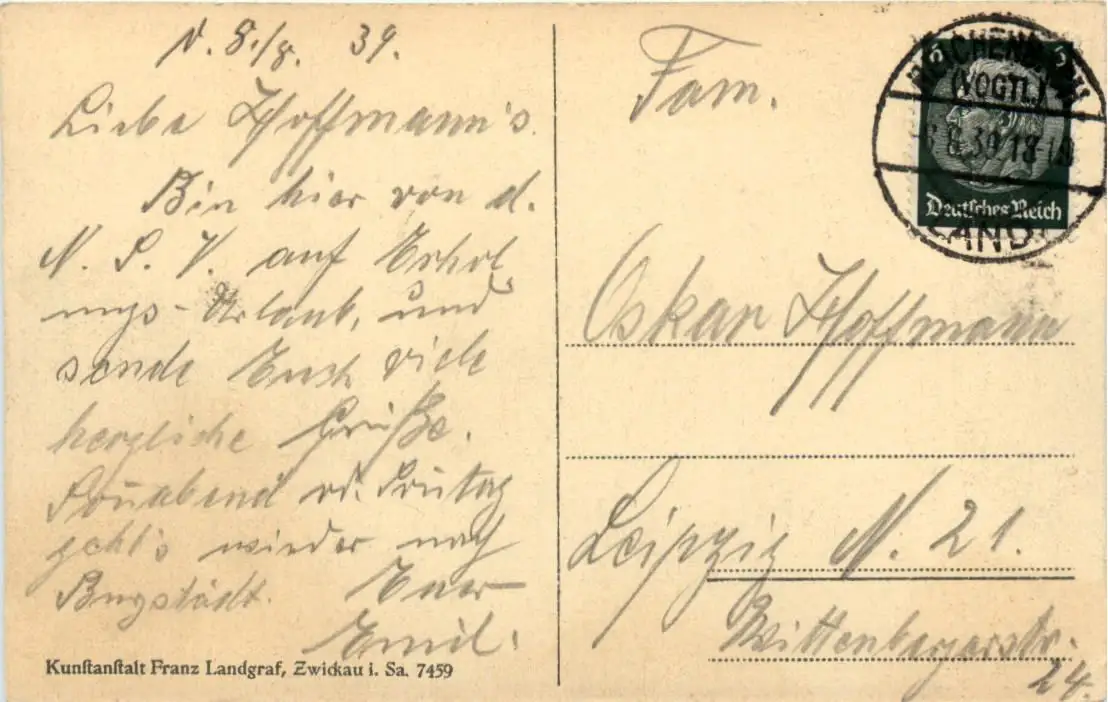 d. 8./8. 39.
Liebe Hoffmann's.
Bin hier von d.
N. S. V. auf Erhol-
ungs-Urlaub, und
sende Euch viele
herzliche Grüße.
Sonnabend od. Sonntag
geht's wieder nach
Burgstädt. Euer
Emil.
Kunstanstalt Franz Landgraf, Zwickau i. Sa. 7459
Fam.
Oskar Hoffmann
Leipzig N. 21.
Wittenbergerstr.
24.
REICHENBACH
(VOGTL.)
8.39.18-19
LAND
5 5
Deutsches Reich